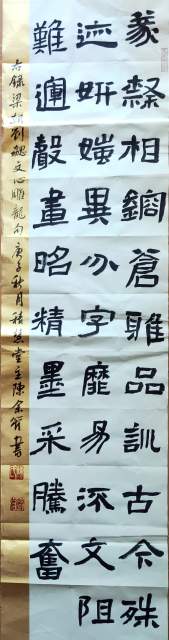 篆隸相鎔蒼雅品訓古今殊
迹妍媸異分字靡易流文阻
難運聲畫昭精墨采騰奮
右錄梁朝劉勰文心雕龍句庚子秋月堂主陳書